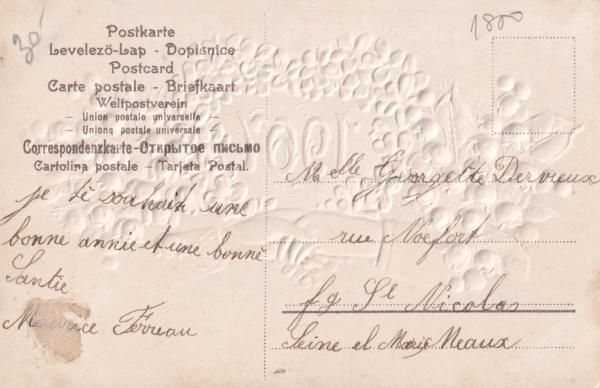 30
1800
Postkarte
Levelezö-Lap - Dopisnice
Postcard
Carte postale - Briefkaart
Weltpostverein
- Union postale universelle -
- Unions postale universale -
Correspondenzkarte-Открытое письмо
Cartolina postale - Tarjeta Postal.
Noël
je te souhait une
bonne annie et une bonne
Santie
Maurice Ferreau
Melle Georgette Dervieux
rue Noefort
fg St Nicolas
Seine et Marie Meaux